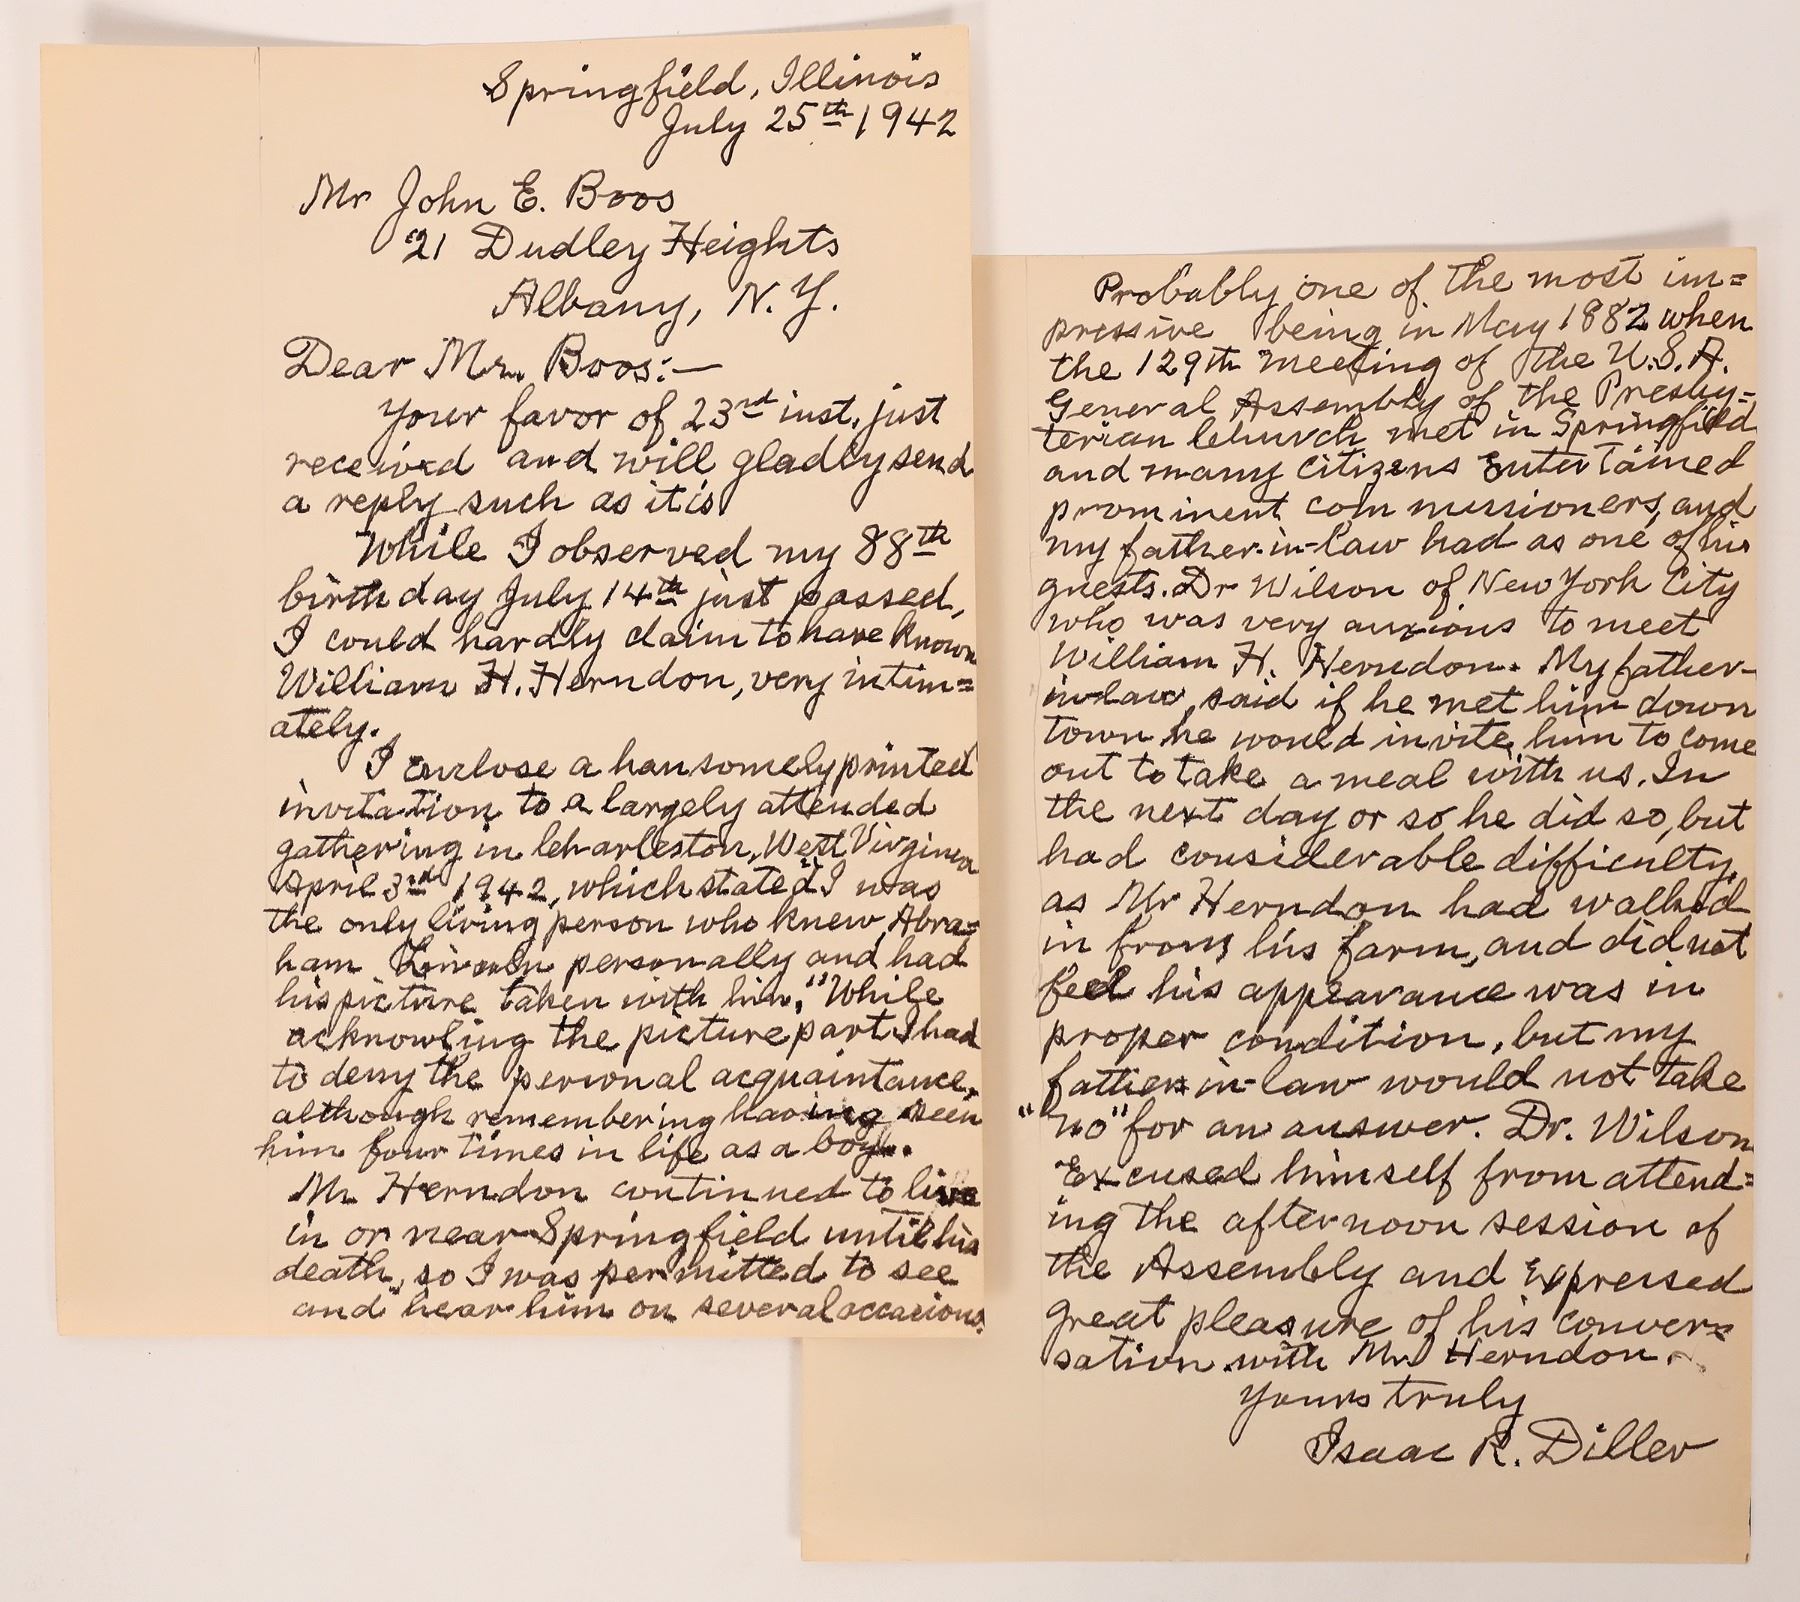 Springfield, Illinois
July 25th 1942
Mr John E. Boos
21 Dudley Heights
Albany, N.Y.
Dear Mr. Boos:—
Your favor of 23rd inst. just
received and will gladly send
a reply such as it is
While I observed my 88th
birthday July 14th just passed,
I could hardly claim to have known
William H. Herndon, very intim=
ately.
I enclose a hansomely printed
invitation to a largely attended
gathering in Charleston, West Virginia
April 3rd 1942, which stated "I was
the only living person who knew Abra=
ham Lincoln personally and had
his picture taken with him." While
acknowling the picture part I had
to deny the personal acquaintance,
although remembering having seen
him four times in life as a boy.
Mr Herndon continued to live
in or near Springfield until his
death, so I was permitted to see
and hear him on several occasions.
Probably one of the most im=
pressive being in May 1882 when
the 129th meeting of the U.S.A.
General Assembly of the Presby=
terian Church met in Springfield
and many citizens entertained
prominent commissioners, and
my father-in-law had as one of his
guests. Dr Wilson of New York City
who was very anxious to meet
William H. Herndon. My father-
in-law, said if he met him down
town he would invite him to come
out to take a meal with us. In
the next day or so he did so, but
had considerable difficulty,
as Mr Herndon had walked
in from his farm, and did not
feel his appearance was in
proper condition, but my
father-in-law would not take
"no" for an answer. Dr. Wilson
Excused himself from attend=
ing the afternoon session of
the Assembly and expressed
great pleasure of his conver=
sation with Mr Herndon.
Yours truly
Isaac R. Diller